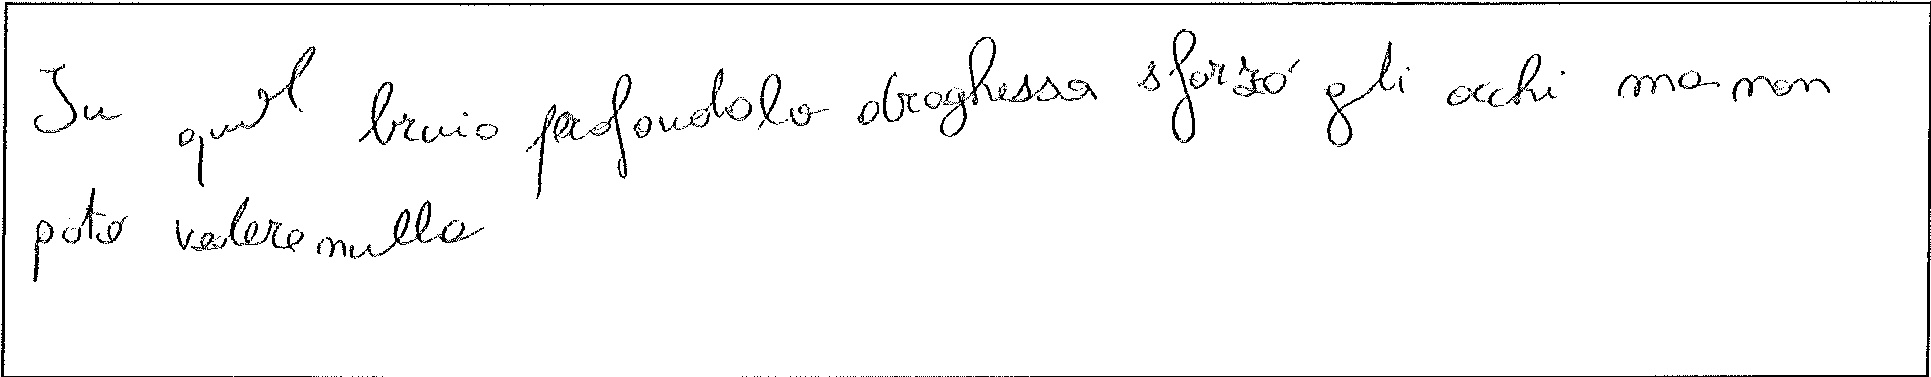 In quel bruio profondola draghessa sforzó gli occhi ma non
poto vedere nulla